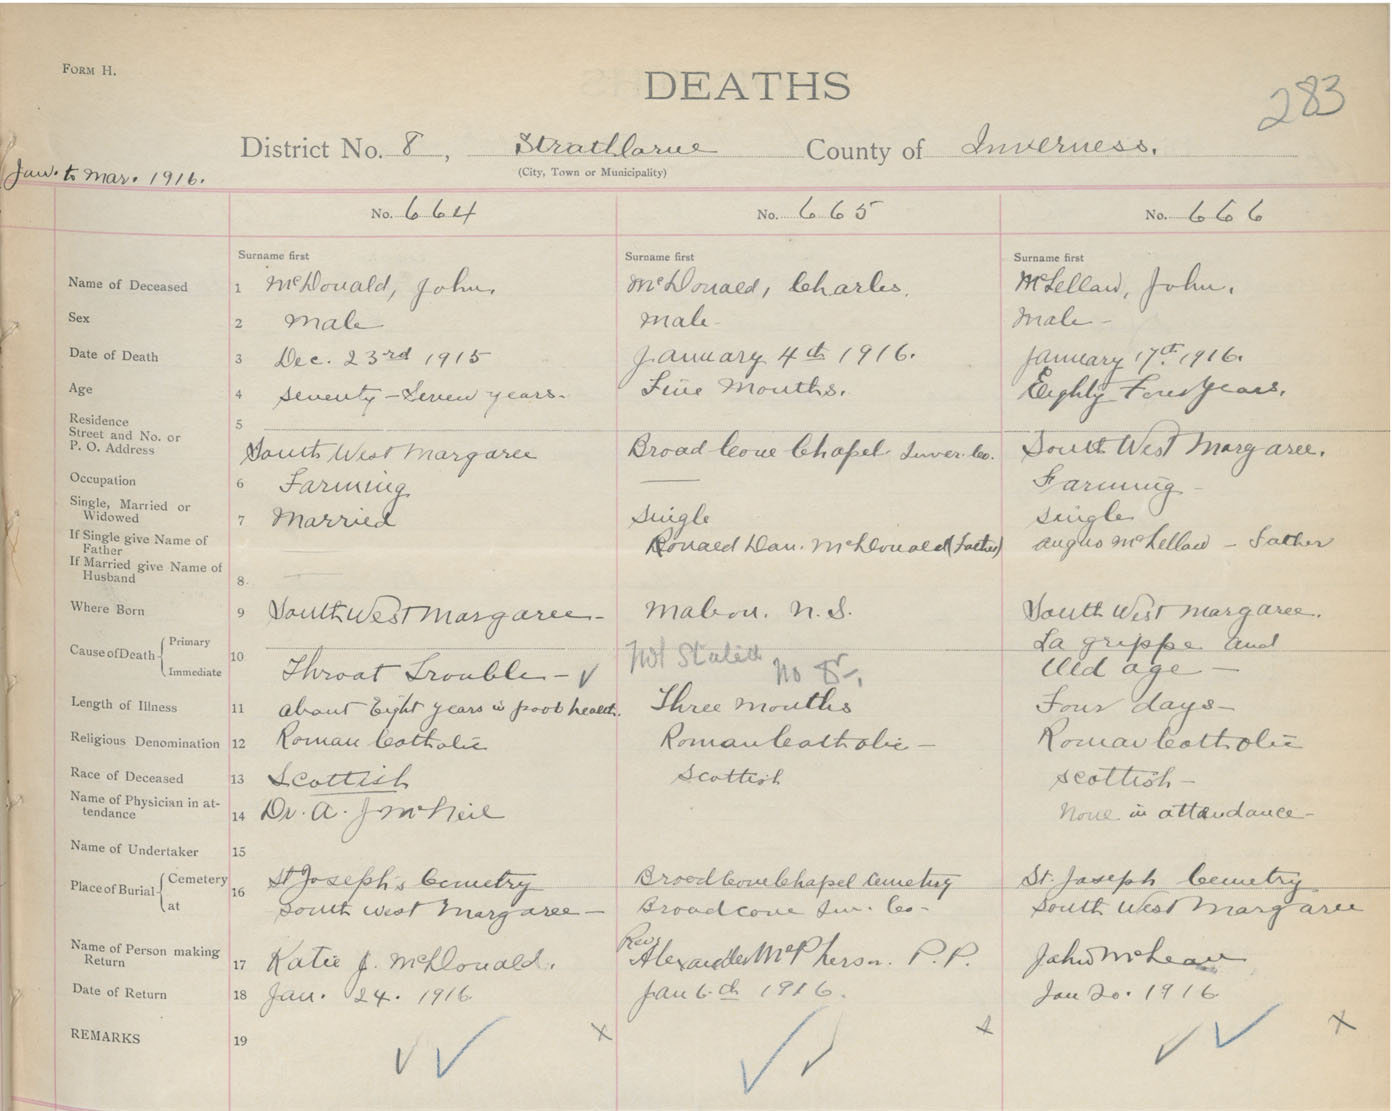 FORM H.
DEATHS
283
District No. 8, Strathlorne County of Inverness.
(City, Town or Municipality)
Jan. to Mar. 1916.
No. 664 No. 665 No. 666
Surname first Surname first Surname first
Name of Deceased 1 McDonald, John. McDonald, Charles. McLellan, John.
Sex 2 Male Male - Male -
Date of Death 3 Dec. 23rd 1915 January 4th 1916. January 17th 1916.
Age 4 Seventy-Seven years. Five Months. Eighty Four Years.
Residence
Street and No. or 5
P. O. Address South West Margaree Broad Cove Chapel Inver. Co. South West Margaree.
Occupation 6 Farming Farming -
Single, Married or
Widowed 7 Married Single Single
If Single give Name of
Father Ronald Dan. McDonald (Father) Angus McLellan - Father
If Married give Name of
Husband 8.
Where Born 9 South West Margaree - Mabou. N. S. South West Margaree.
Cause of Death Primary 10 Not Stated La grippe and
Immediate Throat Trouble - ✓ No Dr. Old age -
Length of Illness 11 about Eight years in poor health. Three Months Four days -
Religious Denomination 12 Roman Catholic Roman Catholic - Roman Catholic
Race of Deceased 13 Scottish Scottish Scottish -
Name of Physician in at-
tendance 14 Dr. A. J McNeil None in attendance -
Name of Undertaker 15
Place of Burial Cemetery 16 St Joseph's Cemetry Broad Cove Chapel Cemetry St. Joseph Cemetry
at South West Margaree - Broad cove Inv. Co - South West Margaree
Name of Person making
Return 17 Katie J. McDonald. Rev. Alexander McPherson. P.P. John McLean
Date of Return 18 Jan. 24. 1916 Jan 6th 1916. Jan 20. 1916
REMARKS 19 ✓ ✓ x ✓ ✓ x ✓ ✓ x